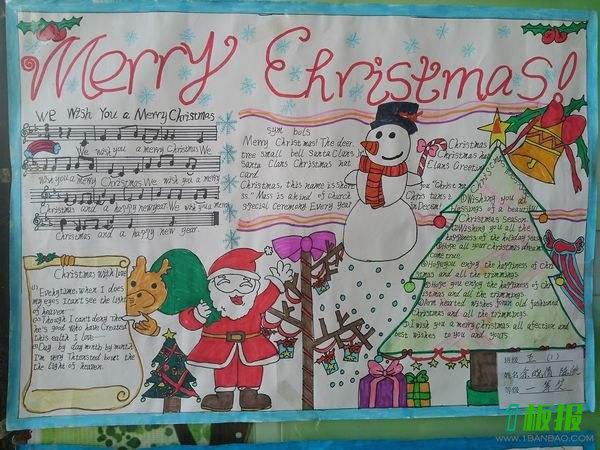 Merry Christmas!
We Wish You a Merry Christmas
We wish you a merry Christmas We
wish you a merry Christmas We wish you a merry
Christmas and a happy new year. We wish you a merry
Christmas and a happy new year.
sym bols
Merry Christmas! The deer.
tree small bell Santa Claus
Santa Clans Christmas hat
card.
Christmas, this name is short
"Mass is a kind of church
special ceremony Every year
Christmas
Christmas ha
Clans Greetin
in Decem
Christmas with love
Everytime when I
my eyes I can't see the light
of heaven
Though I can't deny The
he's good Who have Created
this earth I love
Day by day month by month
I'm very
the light of heaven.
Wishing you all
of a beautiful
Christmas Season.
Wishing you all the
happiness of the holiday season
all your Christmas dreams
come true.
Hope you enjoy the happiness of Chri
stmas and all the trimmings.
Hope you enjoy the happiness of
Christmas and all the trimmings.
Warm hearted wishes for an old fashioned
Christmas and all the trimmings.
I wish you a merry Christmas all affection and
best wishes to you and yours.
班级 五(1)
姓名
等级 一等奖
板报
WWW.1BANBAO.COM